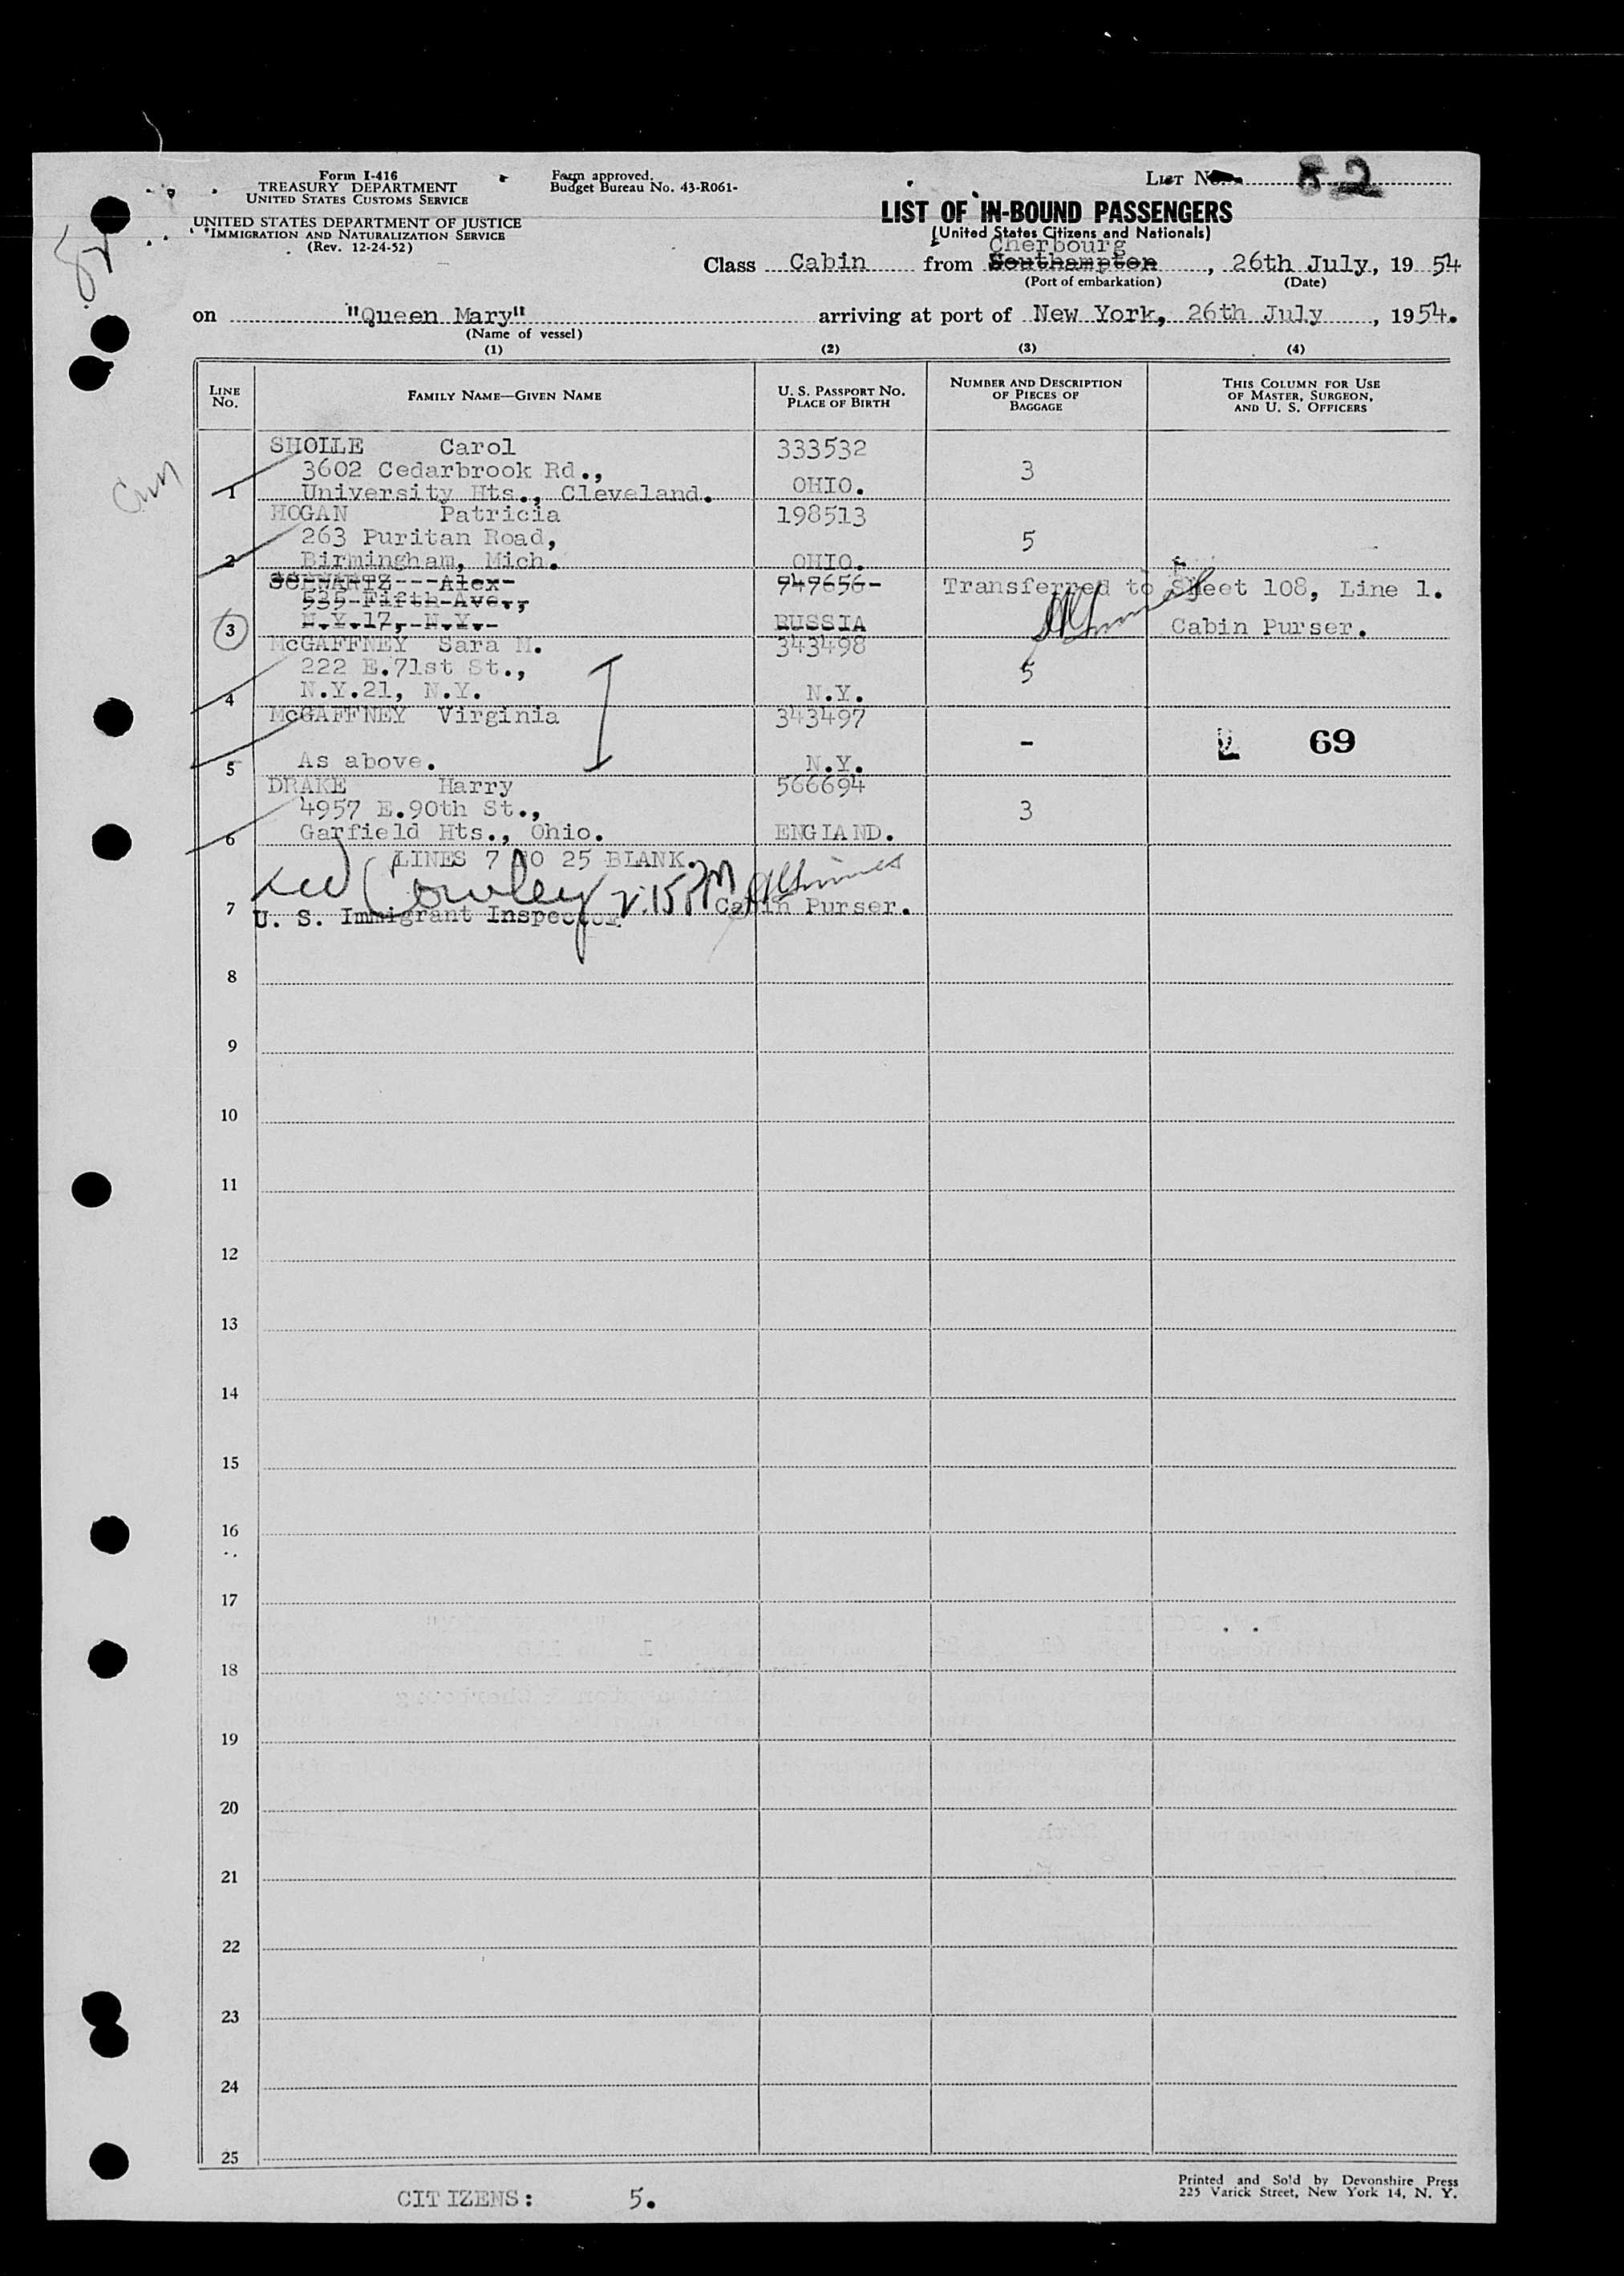 Form I-416
TREASURY DEPARTMENT
UNITED STATES CUSTOMS SERVICE
UNITED STATES DEPARTMENT OF JUSTICE
IMMIGRATION AND NATURALIZATION SERVICE
(Rev. 12-24-52)
Form approved.
Budget Bureau No. 43-R061-
LIST No. 82
LIST OF IN-BOUND PASSENGERS
(United States Citizens and Nationals)
Cherbourg
Class Cabin from Southampton, 26th July, 19 54
(Port of embarkation) (Date)
on "Queen Mary" arriving at port of New York, 26th July, 1954.
(Name of vessel)
(1) (2) (3) (4)
LINE No. FAMILY NAME—GIVEN NAME U. S. PASSPORT No. PLACE OF BIRTH NUMBER AND DESCRIPTION OF PIECES OF BAGGAGE THIS COLUMN FOR USE OF MASTER, SURGEON, AND U. S. OFFICERS
SHOLLE Carol 333532
3602 Cedarbrook Rd., 3
1 University Hts., Cleveland. OHIO.
HOGAN Patricia 198513
263 Puritan Road, 5
2 Birmingham, Mich. OHIO.
SCHWARTZ---Alex- 947656- Transferred to Sheet 108, Line 1.
535-Fifth-Ave.,
3 N.Y.17,-N.Y.- RUSSIA Cabin Purser.
McGAFFNEY Sara M. 343498
222 E.71st St., 5
4 N.Y.21, N.Y. N.Y.
McGAFFNEY Virginia 343497
- 69
5 As above. N.Y.
DRAKE Harry 566694
4957 E.90th St., 3
6 Garfield Hts., Ohio. ENGLAND.
LINES 7 TO 25 BLANK.
Cowley 2:15 PM
7 U. S. Immigrant Inspector Cabin Purser.
8
9
10
11
12
13
14
15
16
17
18
19
20
21
22
23
24
25
CITIZENS: 5.
Printed and Sold by Devonshire Press
225 Varick Street, New York 14, N. Y.